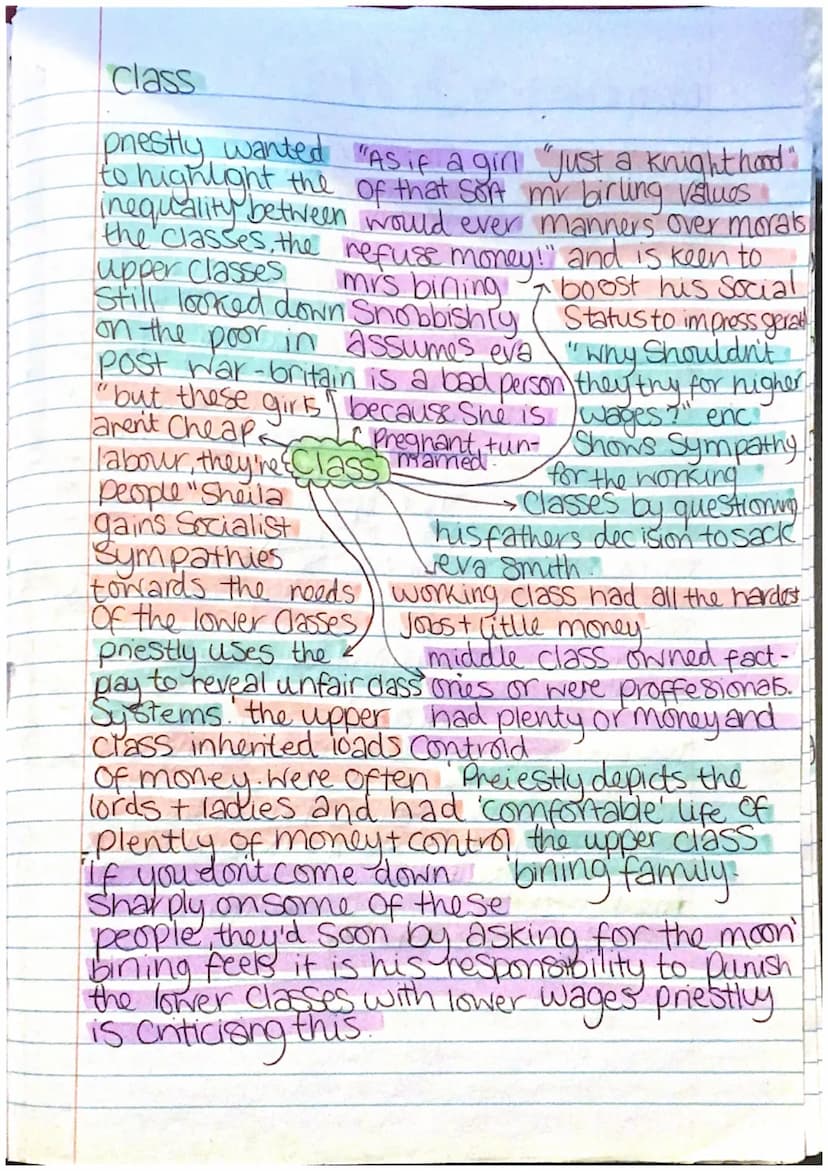 Class
priestly wanted
to highlight the
inequality between
the classes. the
upper classes
still looked down
on the poor in
post war-britain
"As if a girl
of that sort
would ever
refuse money!"
mrs birling
snobbishly
assumes eva
is a bad person
because she is
pregnant + un-
married.
"Just a knighthood"
mr birling values
manners over morals
and is keen to
boost his social
status to impress gerald
"why shouldn't
they try for higher
wages?" eric
shows sympathy
for the working
classes by questioning
his fathers decision to sack
eva smith.
"but these girls
aren't cheap
labour, they're
people" Sheila
gains socialist
sympathies
towards the needs
of the lower classes
Class
working class had all the hardest
jobs + little money
priestly uses the
play to reveal unfair class
systems.
middle class owned fact-
ories or were proffesionals.
had plenty or money and
controld
the upper
class inherited loads
of money. were often
lords + ladies and had
plently of money + control
Preiestly depicts the
'comfortable' life of
the upper class
birling family.
'if you don't come down
sharply on some of these
people, they'd soon by asking for the moon'
birling feels it is his responsibility to punish
the lower classes with lower wages priestly
is criticising this.